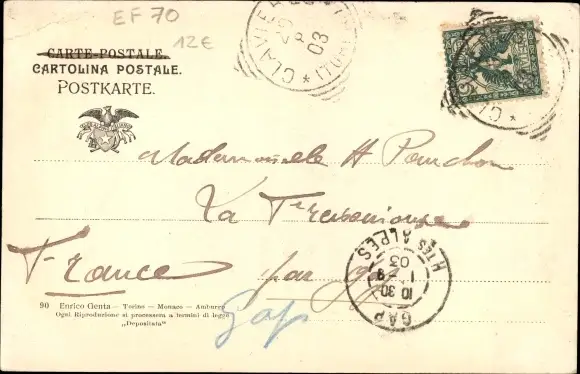 EF 70
12€
CARTE-POSTALE.
CARTOLINA POSTALE.
POSTKARTE.
CLAVIERE
29
03
Mademoiselle H
La
France
par Gap
Gap
GAP
HTES ALPES
10 30
1
9
03
90 Enrico Genta — Torino — Monaco — Amburgo
Ogni Riproduzione si processera a termini di legge
„Depositata"